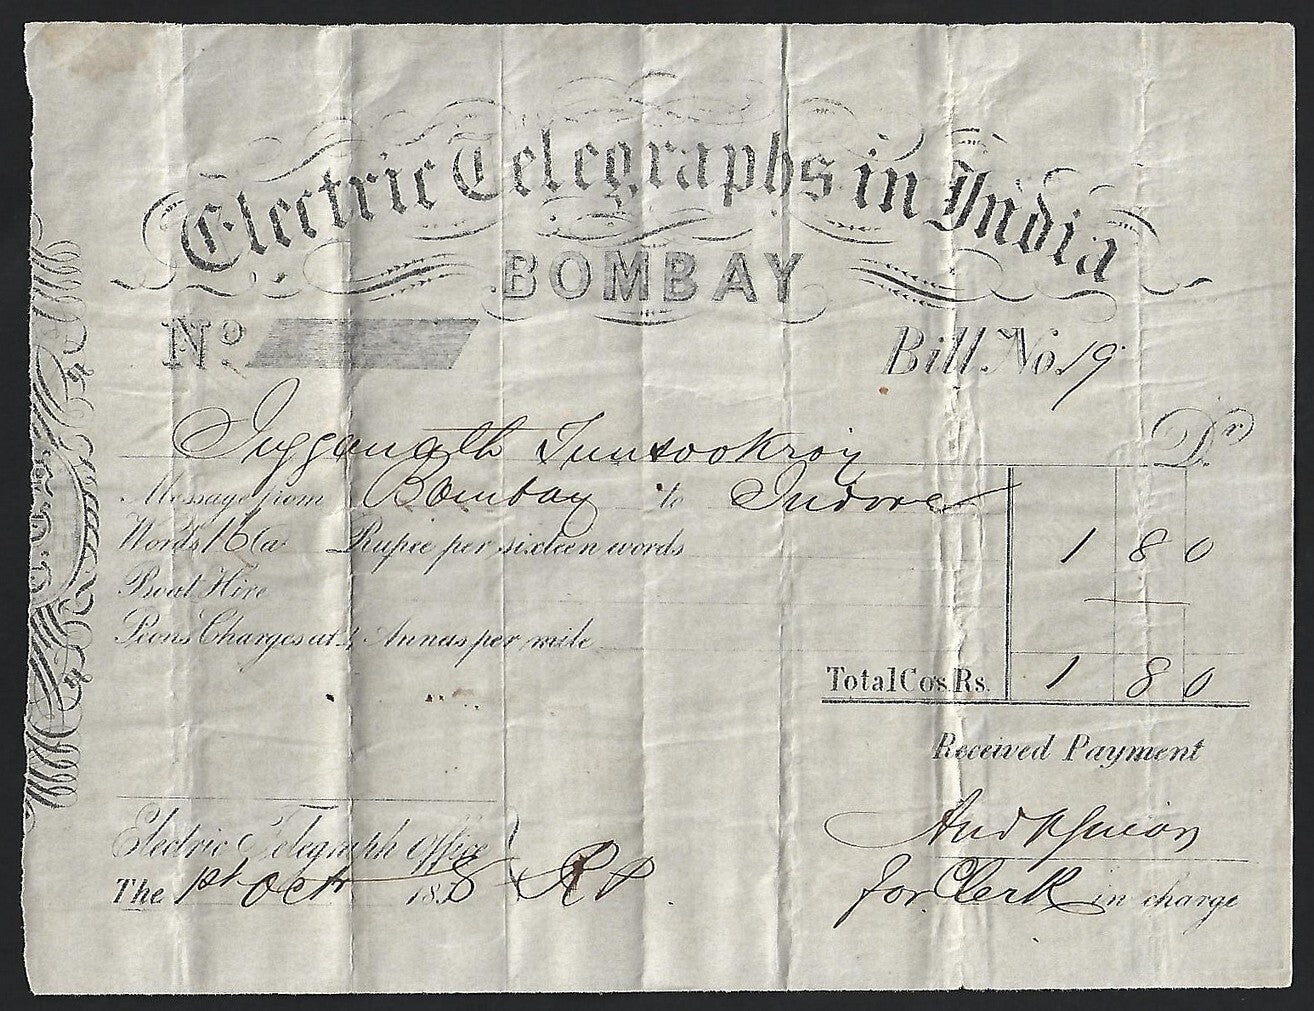 Electric Telegraphs in India
BOMBAY
No. Bill No. 19
Juggonath Dr.
Message from Bombay to Indore
Words 16 @ Rupee per sixteen words 1 8 0
Boat Hire
Peons Charges at 4 Annas per mile
Total Co's Rs. 1 8 0
Received Payment
Electric Telegraph Office
The 1st Octr 185
for Clerk in charge